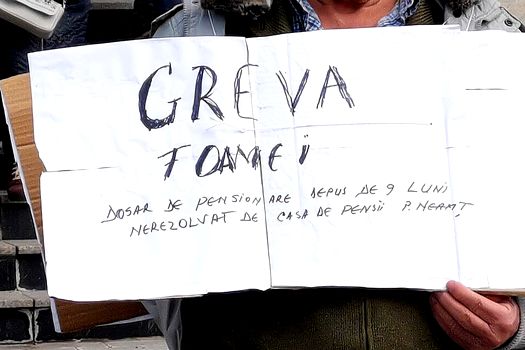 GREVA
FOAMEI
DOSAR DE PENSIONARE DEPUS DE 9 LUNI
NEREZOLVAT DE CASA DE PENSII P. NEAMȚ